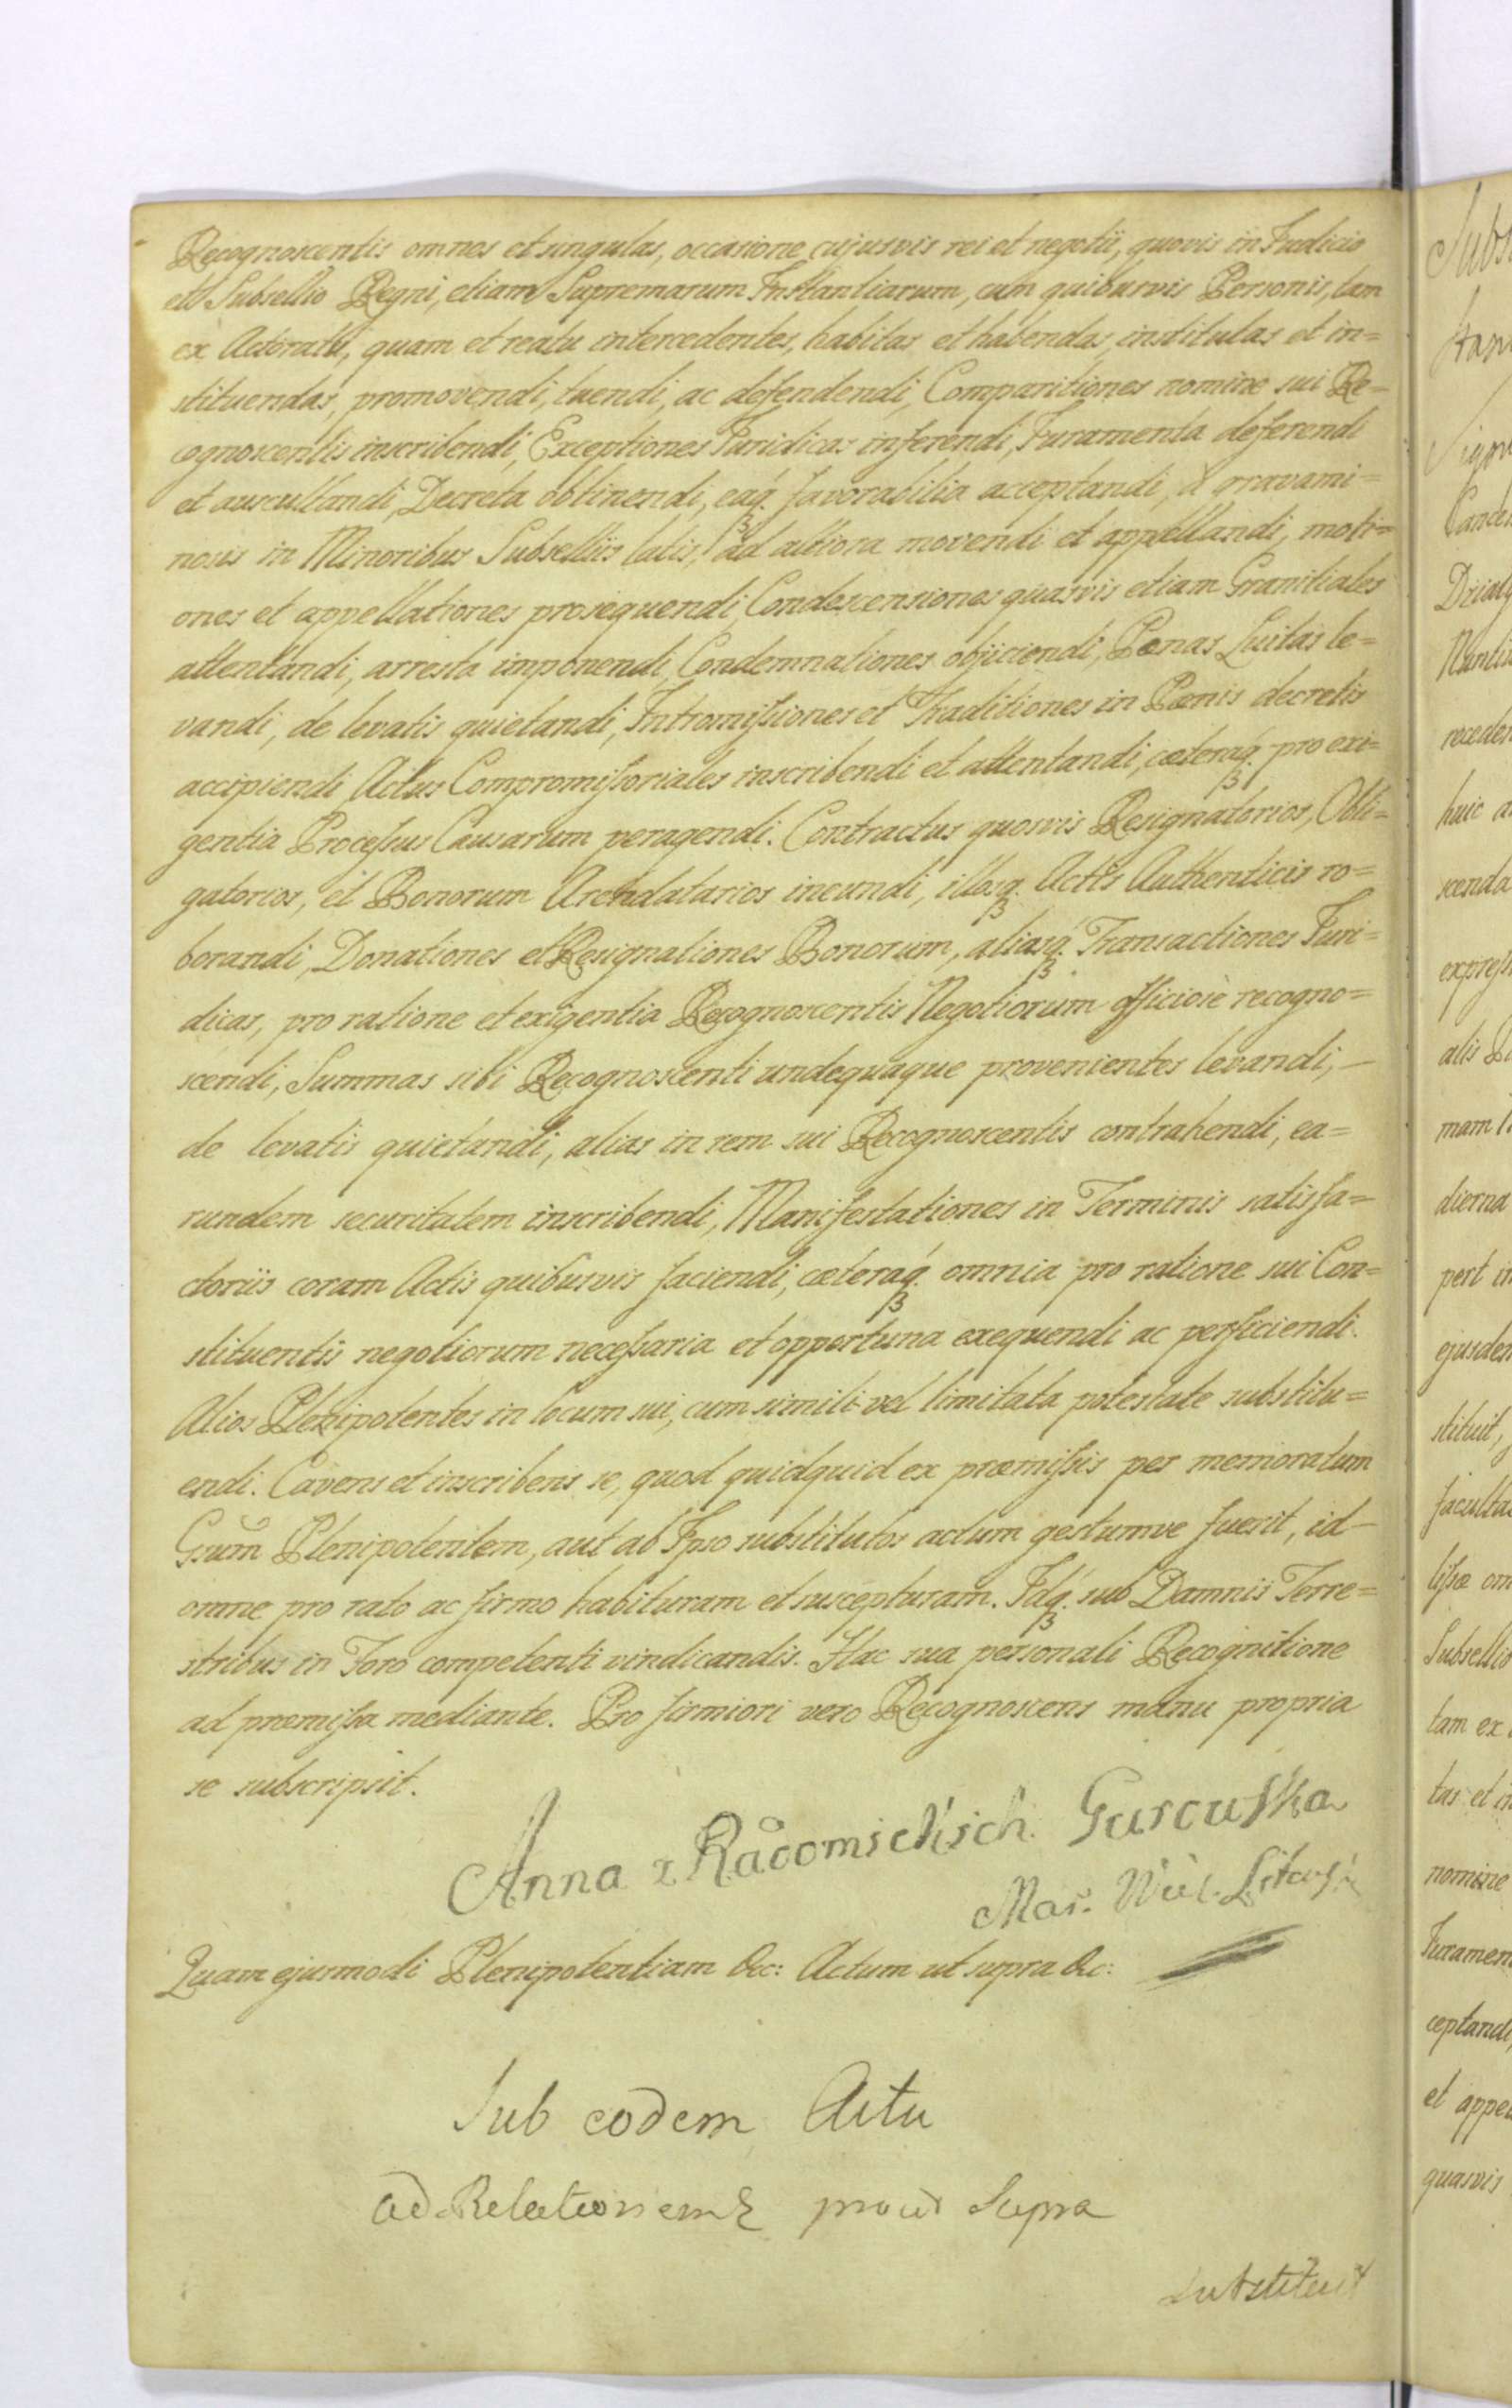 Recognoscentis omnes et singulas, occasione cujusvis rei et negotii, quovis in Judicio
et Subsellio Regni, etiam Supremarum Instantiarum, cum quibusvis Personis, tam
ex Actoratu, quam et reatu intercedentes, habitas et habendas, institutas et in=
stituendas, promovendi, tuendi, ac defendendi, Comparitiones nomine sui Re=
cognoscentis inscribendi, Exceptiones Juridicas inferendi, Juramenta deferendi
et auscultandi, Decreta obtinendi, eaq. favorabilia acceptandi, à gravami=
nosis in Minoribus Subselliis latis, ad altiora movendi et appellandi, moti=
ones et appellationes prosequendi, Condescensiones quasvis etiam Granitiales
attentandi, arresta imponendi, Condemnationes objiciendi, Pœnas Luitas le=
vandi, de levatis quietandi, Intromissiones et Traditiones in Pœnis decretis
accipiendi, Actus Compromissoriales inscribendi et attentandi, cæteraq. pro exi=
gentia Processus Causarum peragendi. Contractus quosvis Resignatorios, Obli=
gatorios, et Bonorum Arendatarios ineundi, illosq. Actis Authenticis ro=
borandi, Donationes et Resignationes Bonorum, aliasq. Transactiones Juri=
dicas, pro ratione et exigentia Recognoscentis Negotiorum officiose recogno=
scendi, Summas sibi Recognoscenti undequaque provenientes levandi, —
de levatis quietandi, alias in rem sui Recognoscentis contrahendi, ea=
rundem securitatem inscribendi, Manifestationes in Terminis satisfa=
ctoriis coram Actis quibusvis faciendi, cæteraq. omnia pro ratione sui Con=
stituentis negotiorum necessaria et opportuna exequendi ac perficiendi.
Alios Plenipotentes in locum sui, cum simili vel limitata potestate substitu=
endi. Cavens et inscribens se, quod quidquid ex præmissis per memoratum
Gsum Plenipotentem, aut ab Ipso substitutos actum gestumve fuerit, id
omne pro rato ac firmo habituram et suscepturam. Idq. sub Damnis Terre=
stribus in Foro competenti vindicandis. Hac sua personali Recognitione
ad præmissa mediante. Pro firmiori vero Recognoscens manu propria
se subscripsit.
Anna z
Mar.
Quam ejusmodi Plenipotentiam &c: Actum ut supra &c:
Sub eodem Actu
ad Relationem prout Supra
substituit